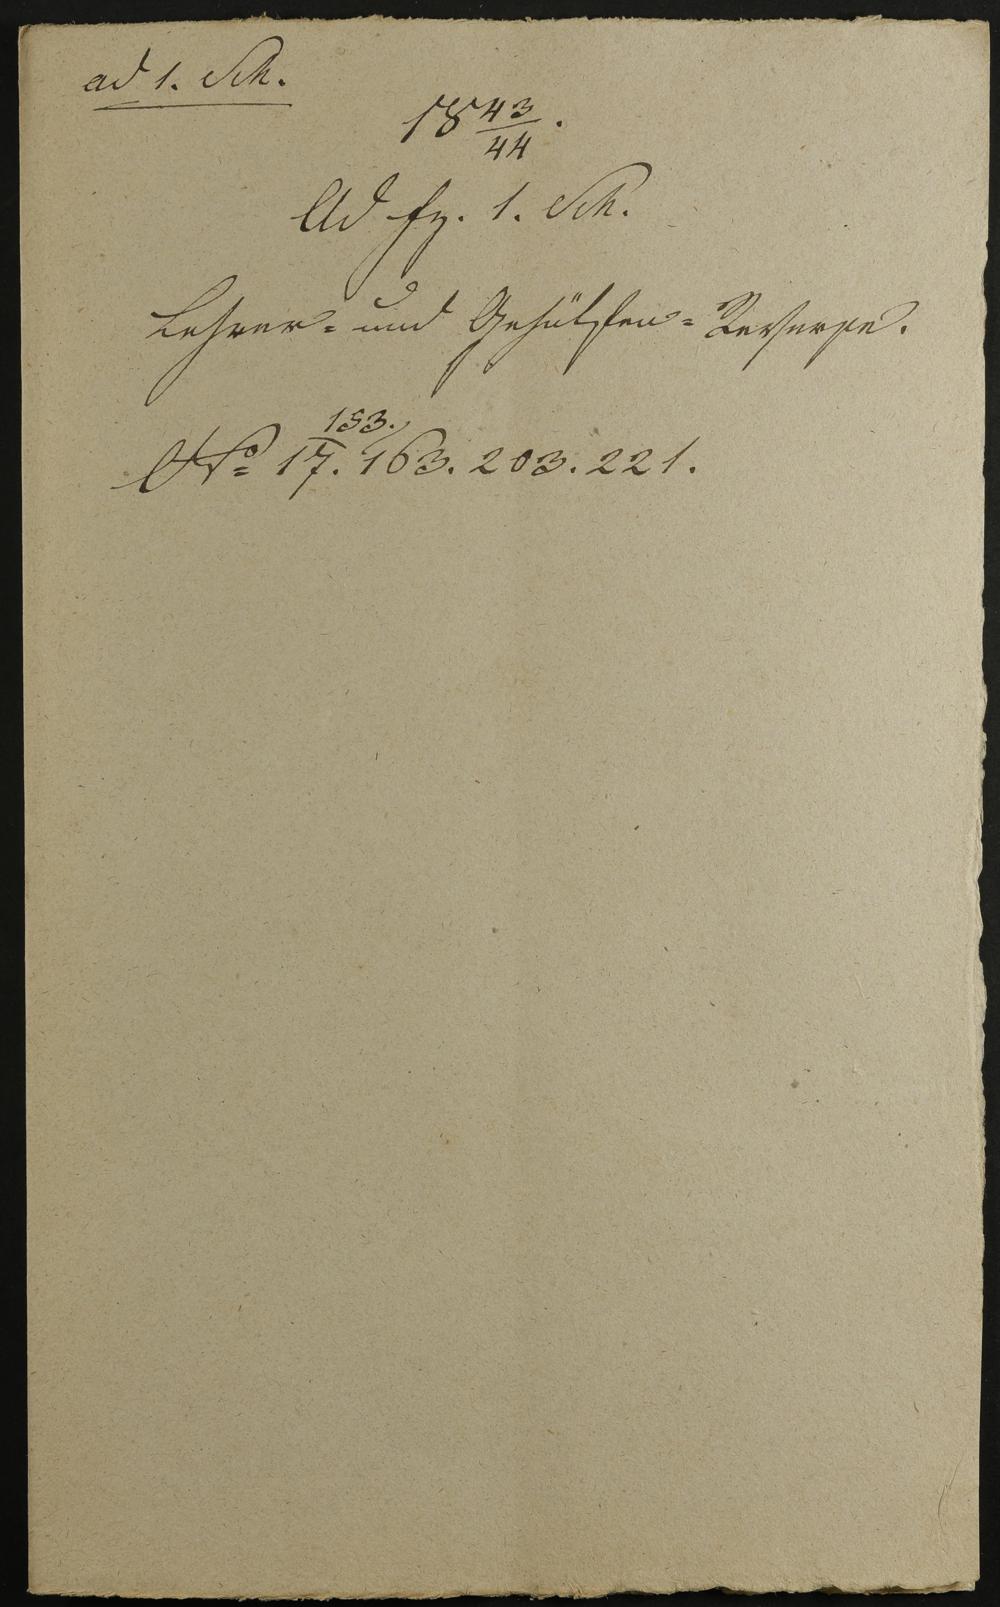 ad 1. Sch.
18 43/44.
Ad fz. 1. Sch.
Lehrer= und Gehülfen=Reverse.
153.
No 17. 163. 203. 221.